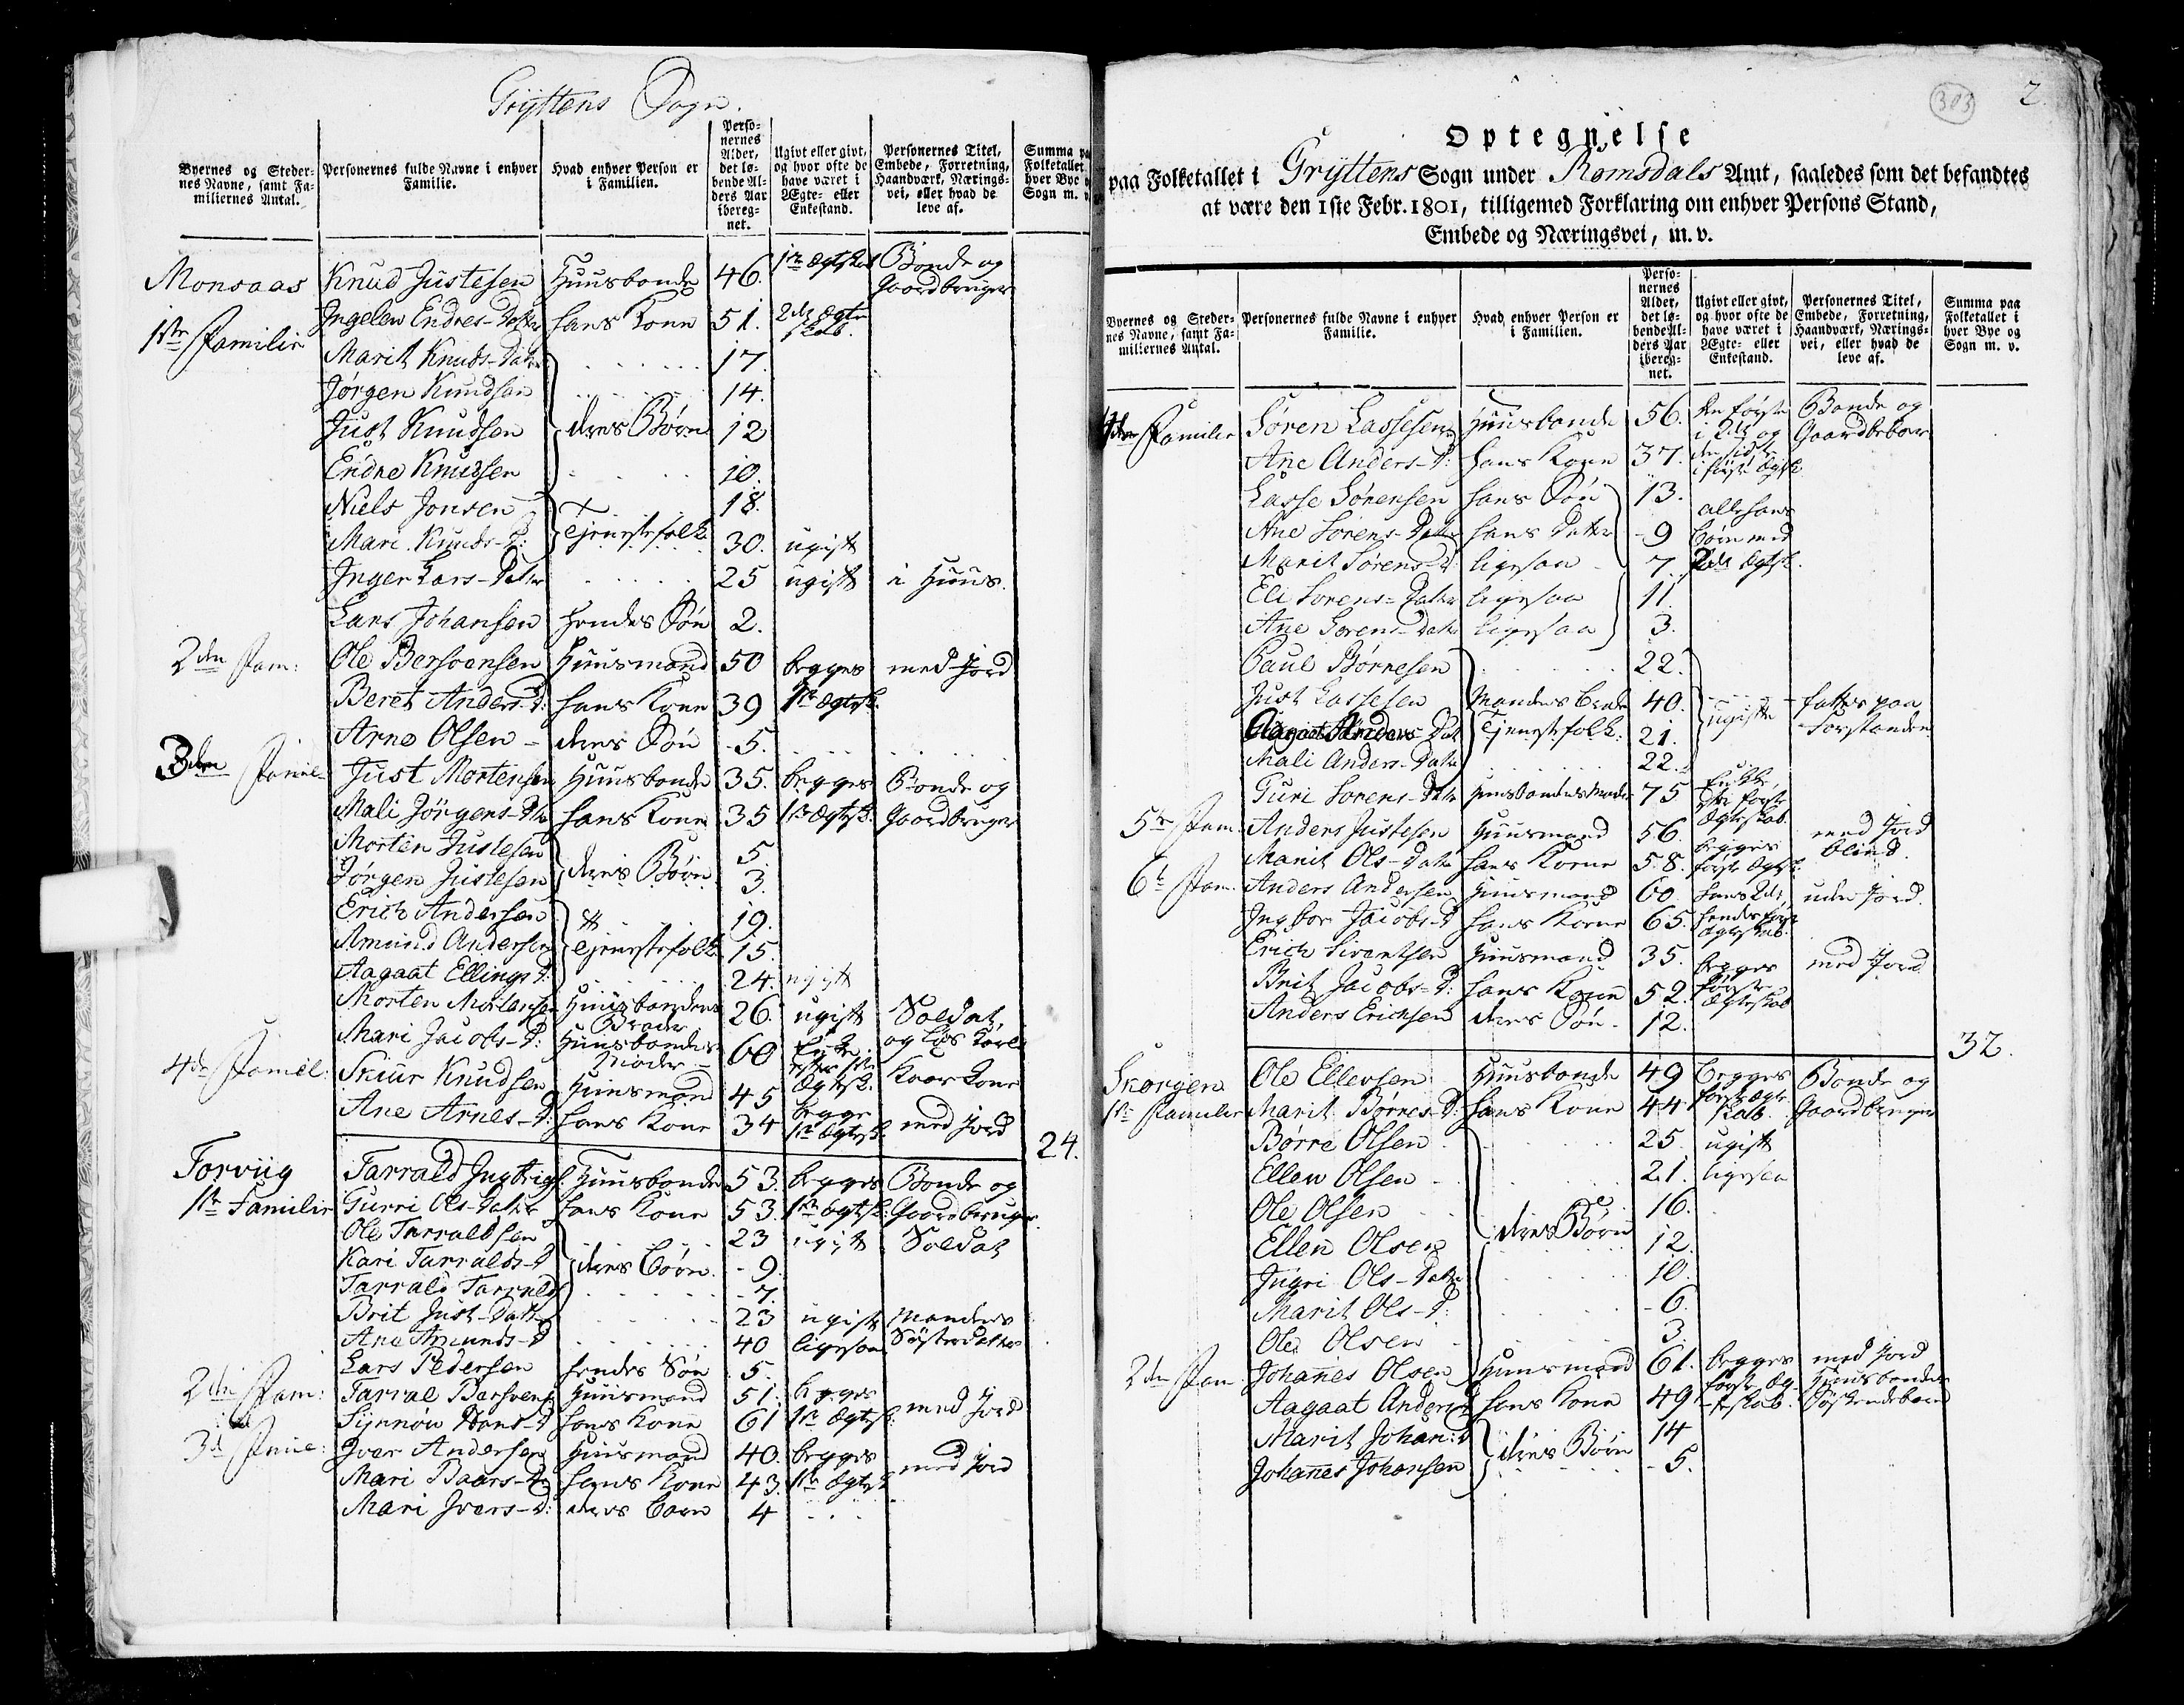 Gryttens Sogn.
Byernes og Steder-
nes Navne, samt Fa-
miliernes Antal.
Personernes fulde Navne i enhver
Familie.
Hvad enhver Person er
i Familien.
Perso-
nernes
Alder,
det lø-
bende Al-
ders Aar
ibereg-
net.
Ugivt eller givt,
og hvor ofte de
have været i
Ægte- eller
Enkestand.
Personernes Titel,
Embede, Forretning,
Haandværk, Nærings-
vei, eller hvad de
leve af.
Summa pa
Folketallet
hver Bye
Sogn m. v.
Monsaas Knud Justesen Huusbonde 46. 1te Ægtskab Bonde og Gaardbruger
1ste Familie Ingelen Endres-Datter hans Kone 51. 2det Ægteskab.
Marit Knuds-Datter 17.
Jørgen Knudsen 14.
Just Knudsen deres Børn 12
Endre Knudsen 10.
Niels Jonsen 18.
Mari Knuds-D: Tjenestefolk 30. ugift
Inger Lars-Datter 25 ugift i Huus.
Lars Johansen hendes Søn 2.
2den Fam: Ole Bersvensen Huusmand 50 begges med Jord
Beret Anders-D: hans Kone 39 1te Ægtesk.
Arne Olsen deres Søn 5.
3den Famil: Just Mortensen Huusbonde 35. begges Bonde og
Mali Jørgens-Dtr hans Kone 35 1te Ægtesk. Gaardbruger
Morten Justesen 5.
Jørgen Justesen deres Børn 3.
Erich Andersen 19.
Amund Andersen Tjenestefolk 15.
Aagaat Ellings D: 24. ugift
Morten Mortensen Huusbondens Broder 26. ugift Soldat
Mari Jacobs-D: Huusbondens Moder 60 Enke efter 1ste Ægtesk. Kaarkone
4de Famil: Skiur Knudsen Huusmand 45 begge
Ane Arnes-D: hans Kone 34 1te Ægtesk. med Jord
24.
Torviig Tarrald Ingbrigs: Huusbonde 53. begges Bonde og
1te Familie Gurri Ols-Datter hans Kone 53. 1te Ægtesk: Gaardbruger.
Ole Tarraldsen 23 ugift Soldat
Kari Tarralds-D deres Børn. 9.
Tarrald Tarralds 7.
Brit Just-Datter 23 ugift Mandens
Ane Amunds-D 40 ligesaa Søsterdatter
Lars Pedersen hendes Søn 5.
2den Fam: Tarral Bersvens Huusmand 51. begges
Synnøv Hans-D hans Kone 61 1te Ægtesk: med Jord
3de Famil: Iver Andersen Huusmand 40. begges
Mari Baars-D hans Kone 43. 1te Ægtesk med Jord
Mari Ivers-D: deres Barn 4
303
2.
Optegnelse
paa Folketallet i Gryttens Sogn under Romsdals Amt, saaledes som det befandtes
at være den 1ste Febr. 1801, tilligemed Forklaring om enhver Persons Stand,
Embede og Næringsvei, m. v.
Byernes og Steder-
nes Navne, samt Fa-
miliernes Antal.
Personernes fulde Navne i enhver
Familie.
Hvad enhver Person er
i Familien.
Perso-
nernes
Alder,
det lø-
bende Al-
ders Aar
ibereg-
net.
Ugivt eller givt,
og hvor ofte de
have været i
Ægte- eller
Enkestand.
Personernes Titel,
Embede, Forretning,
Haandværk, Nærings-
vei, eller hvad de
leve af.
Summa paa
Folketallet i
hver Bye og
Sogn m. v.
4den Familie Søren Lassesen Huusbonde 56. den første i 2det og Bonde og Gaardbeboer
Ane Anders-D: hans Kone 37. den sidste i første Ægtsk:
Lasse Sørensen hans Søn 13.
Ane Sørens-Datter hans Datter 9 alle hans Børn med
Marit Sørens-D: ligesaa 7. 2det Ægtsk.
Eli Sørens-Datter ligesaa 11.
Ane Sørens-Datter ligesaa 3.
Paul Børnesen 22.
Just Lassesen Mandens Broder 40. ugifte
Aagaat Anders-Dat Tjenestefolk: 21.
Mali Anders-Datter 22.
Guri Sørens-Datter Huusbondens Moder 75 Enke, efter første Ægteskab
5te Fam. Anders Justesen Huusmand 56. begges med Jord
Marit Ols-Datter hans Kone 58. første Ægtsk. blind.
6te Fam. Anders Andersen Huusmand 60. hans 2det, uden Jord.
Ingbor Jacobs-D hans Kone 65. hendes første Ægteskab.
Erich Sivertsen Huusmand 35. begges med Jord
Brit Jacobs-D: hans Kone 52. første Ægteskab
Anders Erichsen deres Søn. 12.
32.
Skorgen Ole Ellevsen Huusbonde 49 begges Bonde og
1te Familie Marit Børnes-D: hans Kone 44 første Ægteskab. Gaardbruger
Børre Olsen 25. ugift
Ellen Olsen 21. ligesaa
Ole Olsen 16.
Ellen Olsen deres Børn 12.
Ingri Ols-Datter 10.
Marit Ols-D: 6.
Ole Olsen 3.
2den Fam Johannes Olsen Huusmand 61. begges med Jord
Aagaat Anders D hans Kone 49 første Ægteskab. Huusbondens Søskendebarn
Marit Johan: D 14
Johannes Johansen deres Børn 5.